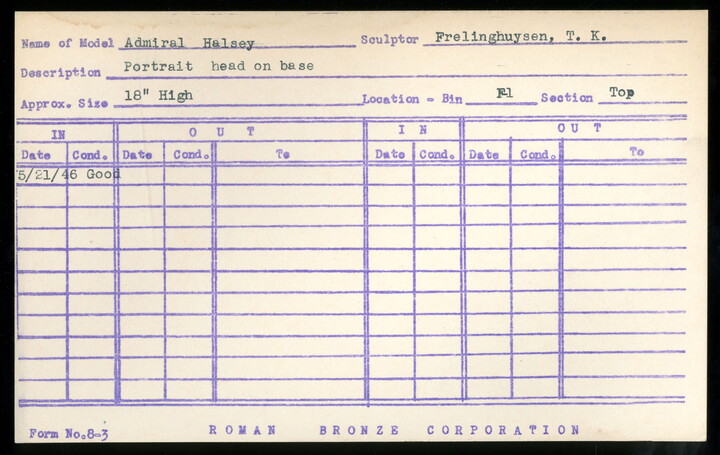 Name of Model Admiral Halsey Sculptor Frelinghuysen, T. K.
Description Portrait head on base
Approx. Size 18" High Location - Bin F-1 Section Top
IN OUT IN OUT
Date Cond. Date Cond. To Date Cond. Date Cond. To
5/21/46 Good
Form No.8-3 ROMAN BRONZE CORPORATION